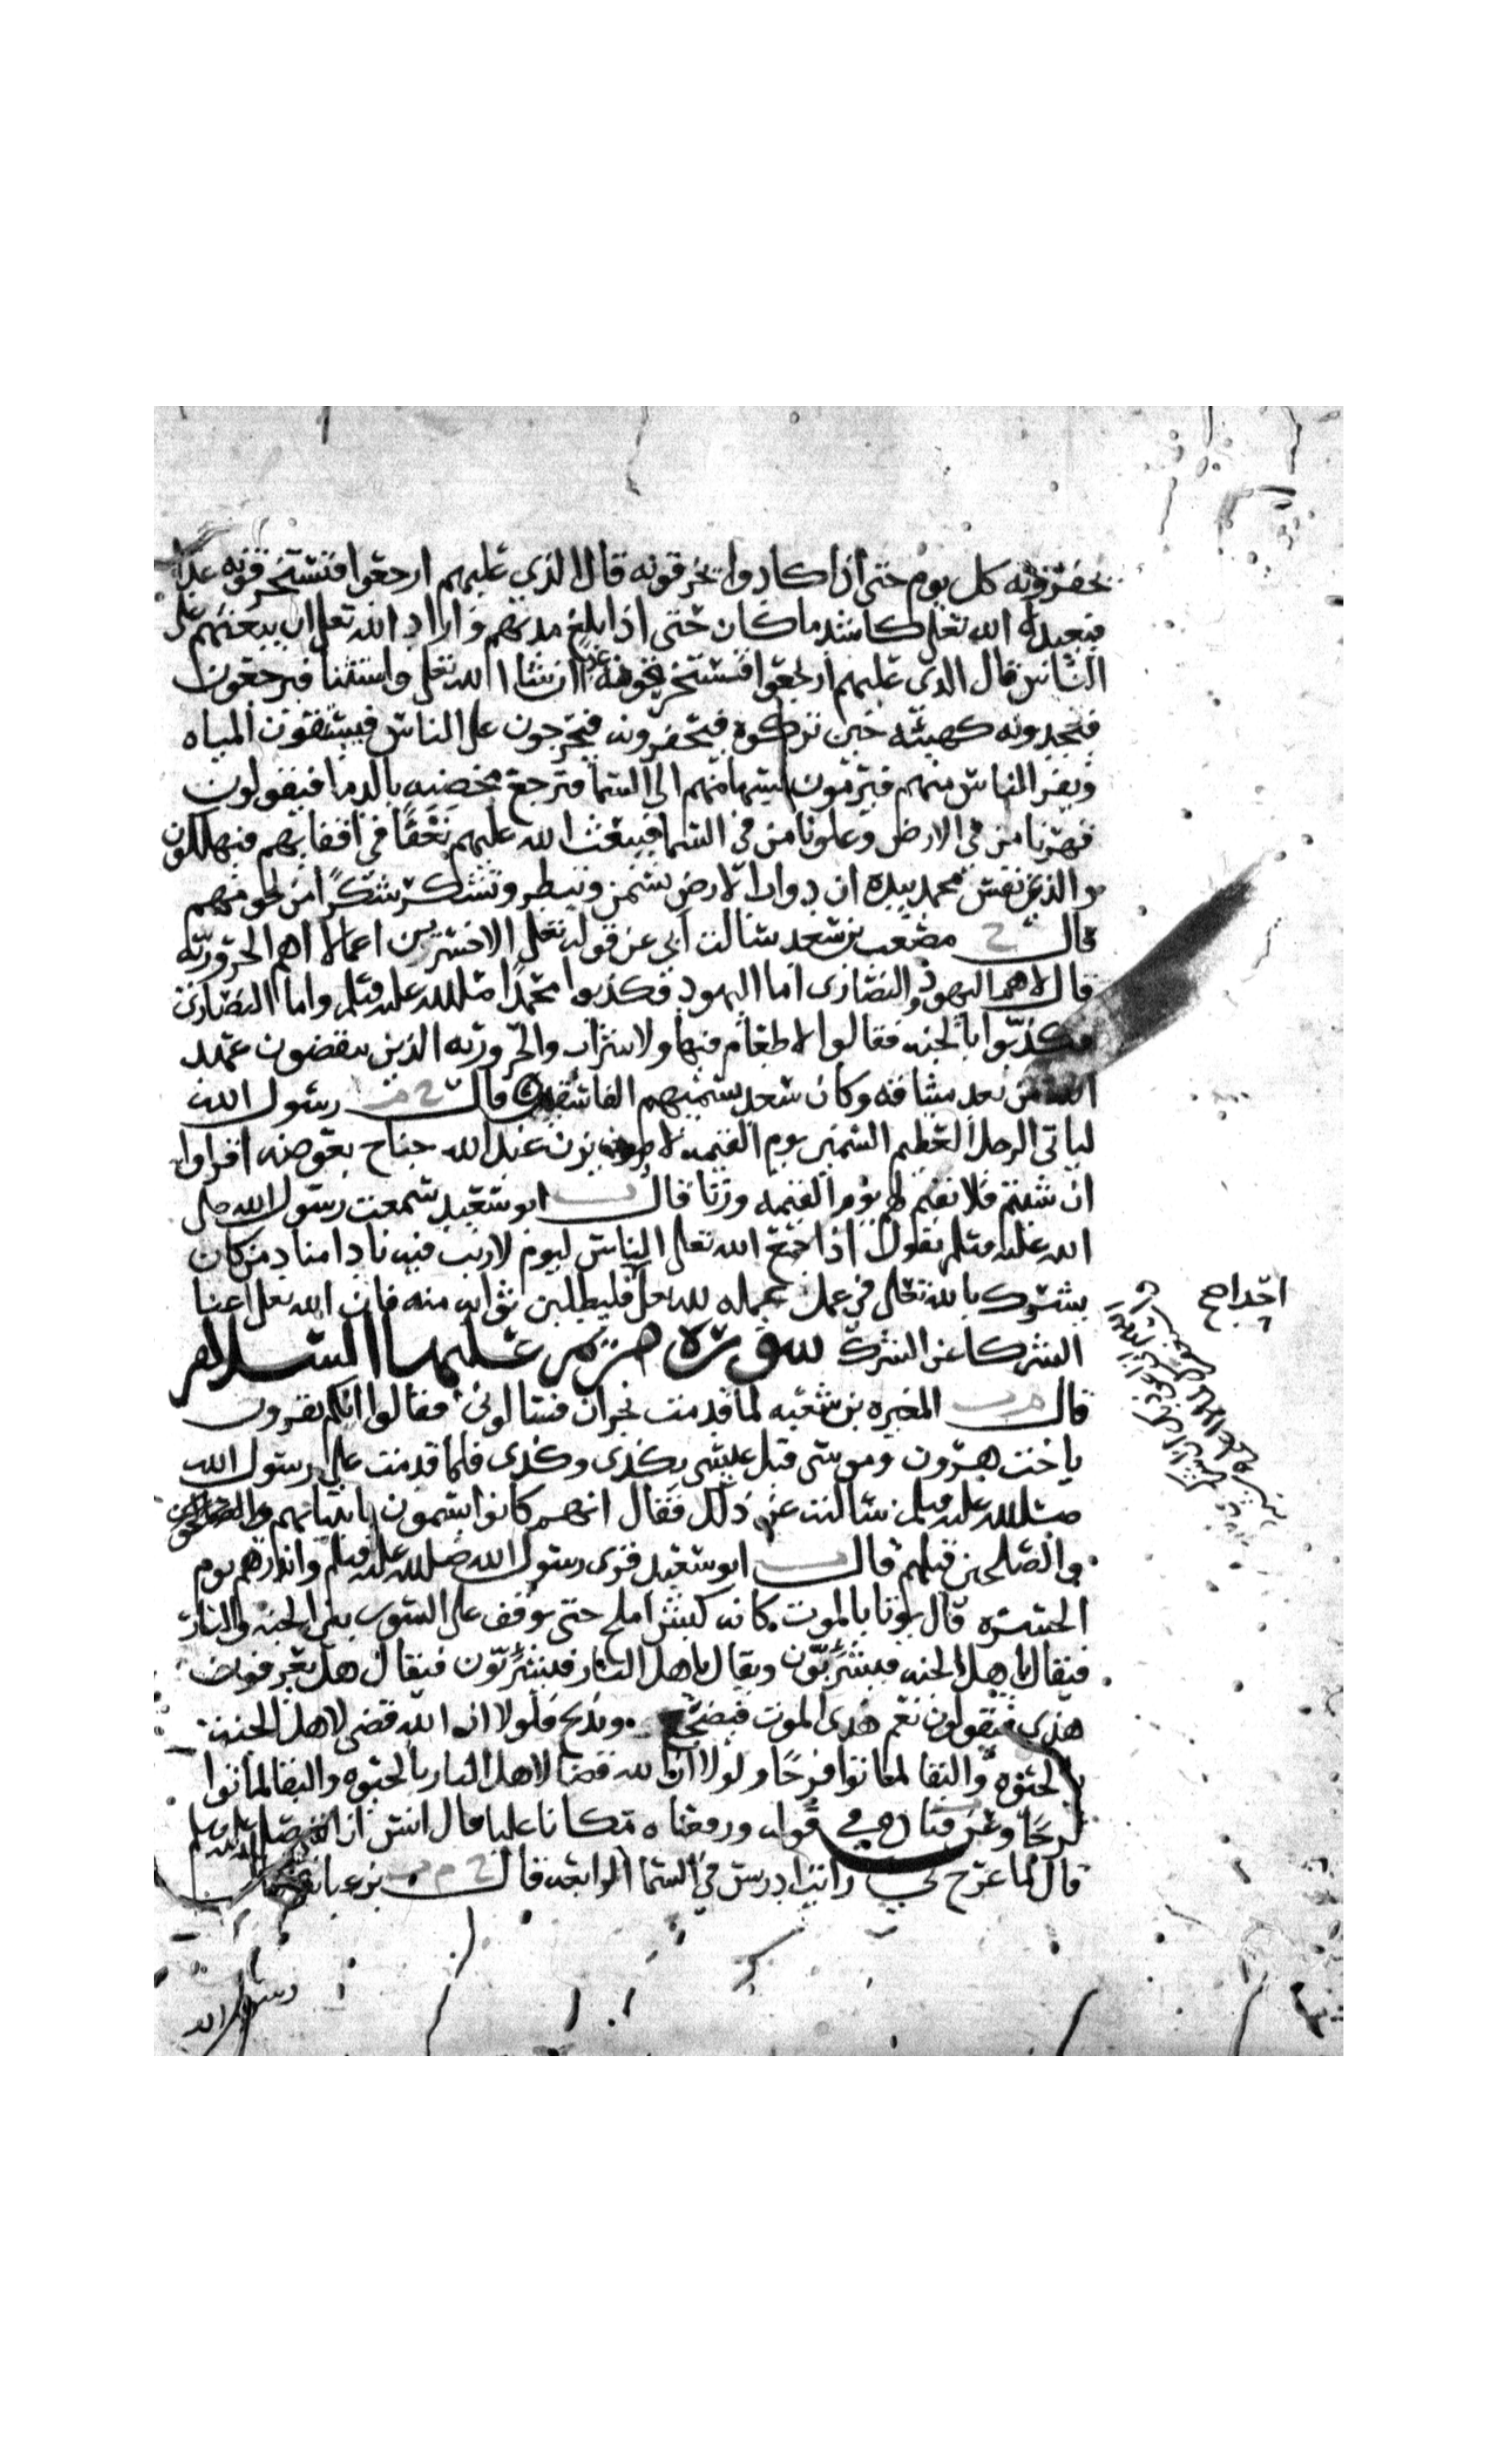 يحفرونه كل يوم حتى اذا كادوا يخرقونه قال الذي عليهم ارجعوا فستخرقونه غدا
فيعيده الله تعلى كاشد ما كان حتى اذا بلغ مدتهم واراد الله تعلى ان يبعثهم على
الناس قال الذي عليهم ارجعوا فستخرقونه غدا ان شاا الله تعلى واستثنا فيرجعون
فيجدونه كهيئته حين تركوه فيخرقونه فيخرجون على الناس فيستقون المياه
ويفر الناس منهم فيرمون بسهامهم الى السما فترجع مخضبه بالدما فيقولون
قهرنا من في الارض وعلونا من في السما فيبعث الله عليهم نَغَفًا في اقفايهم فيهلكون
والذي نفس محمد بيده ان دواب الارض تسمن وتبطر وتشكر شكرًا من لحومهم
قال خ مصعب بن سعد سالت ابي عن قوله تعلى الاخسرين اعمالا اهم الحروريه
قال لا هم اليهود والنصارى اما اليهود فكذبوا محمدًا صلى الله عليه وسلم واما النصارى
فكذبوا بالجنه فقالوا لا طعام فيها ولا شراب والحروريه الذين ينقضون عهد
الله من بعد ميثاقه وكان سعد يسميهم الفاسقين قال خ م رسول الله
لياتي الرجل العظيم السمين يوم القيمه لا يزن عند الله جناح بعوضه اقراوا
ان شيتم فلا نقيم لهم يوم القيمه وزنا قال ت ابو سعيد سمعت رسول الله صلى
الله عليه وسلم يقول اذا جمع الله تعلى الناس ليوم لا ريب فيه نادا مناد من كان
يشرك بالله تعلى في عمل عمله لله تعلى فليطلبن ثوابه منه فان الله تعلى اغنا
الشركا عن الشرك سورة مريم عليها السلام
قال م ت المغيره بن شعبه لما قدمت نجران فسالوني فقالوا انكم تقرون
ياخت هرون وموسى قبل عيسى بكذى وكذى فلما قدمت على رسول الله
صلى الله عليه وسلم سالته عن ذلك فقال انهم كانوا يسمون بانبيائهم
والصلحين قبلهم قال ت ابو سعيد قرى رسول الله صلى الله عليه وسلم وانذرهم يوم
الحسره قال يوتا بالموت كانه كبش املح حتى يوقف على السور بين الجنه والنار
فيقال ياهل الجنه فيشرئبّون ويقال ياهل النار فيشرئبّون فيقال هل تعرفون
هذى فيقولون نعم هذى الموت فيضجع ويذبح فلولا ان الله قضى لاهل الجنه
بالحيوه والبقا لماتوا فرحًا ولولا ان الله قضا لاهل النار بالحيوه والبقا لماتوا
ترحًا وعن قتاده في قوله ورفعناه مكانا عليا قال انس ان النبي صلى الله عليه وسلم
قال لما عرج بي رايت ادريس في السما الرابعه قال خ م ت بن عباس
رسول الله